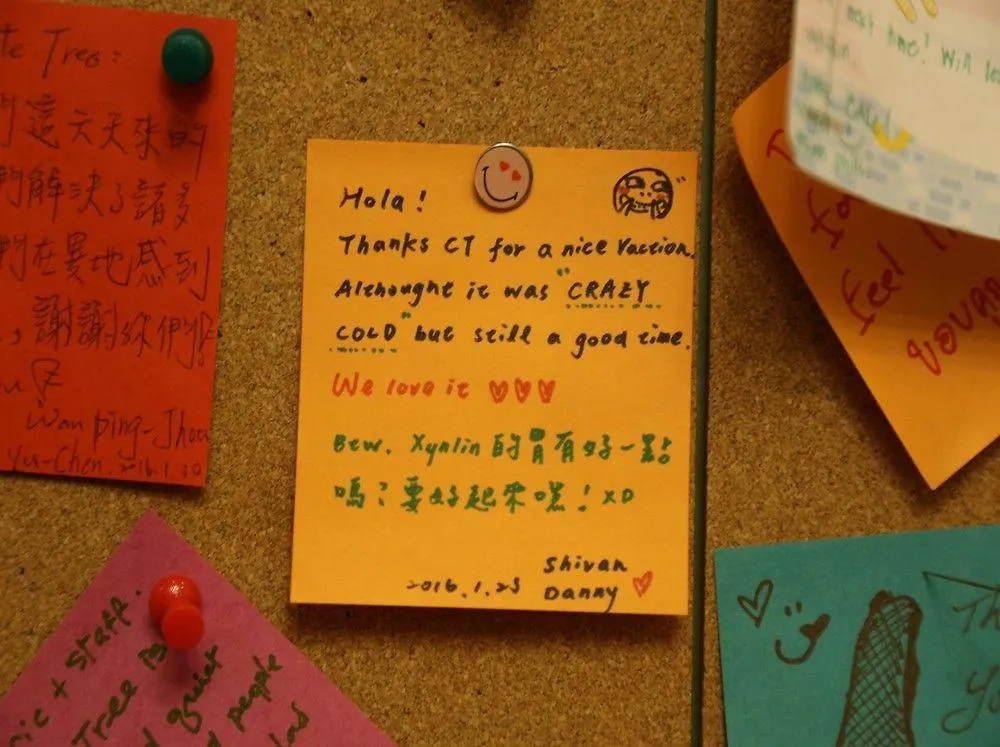 te Tree:
這六天來的
們解決了諸多
們在異地感到
，謝謝你們
Wan ping-Jhou
Yu-Chen. 2016.1.30
Hola!
Thanks CT for a nice Vaction.
Althought it was "CRAZY
COLD" but still a good time.
We love it ♡♡♡
Btw. Xynlin 的胃有好一點
嗎？要好起來嘿！XD
Shivan
2016.1.25 Danny ♡
next time! Will
again.
feel
ic + staff.
Tree is
d quiet
d people
Th
yo